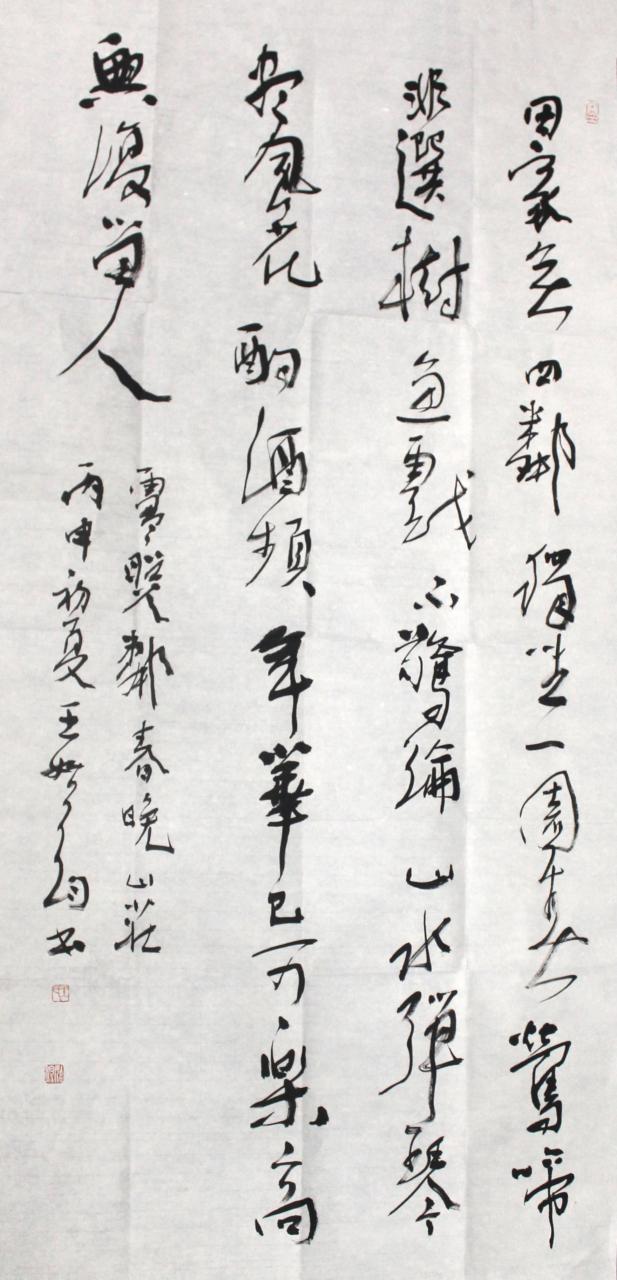 田家无四鄰獨坐一園春鶯啼
非選樹魚戲不驚綸山水彈琴
盡風花酌酒頻年華已可樂高
興復留人
盧照鄰春晚山莊
丙申初夏王書